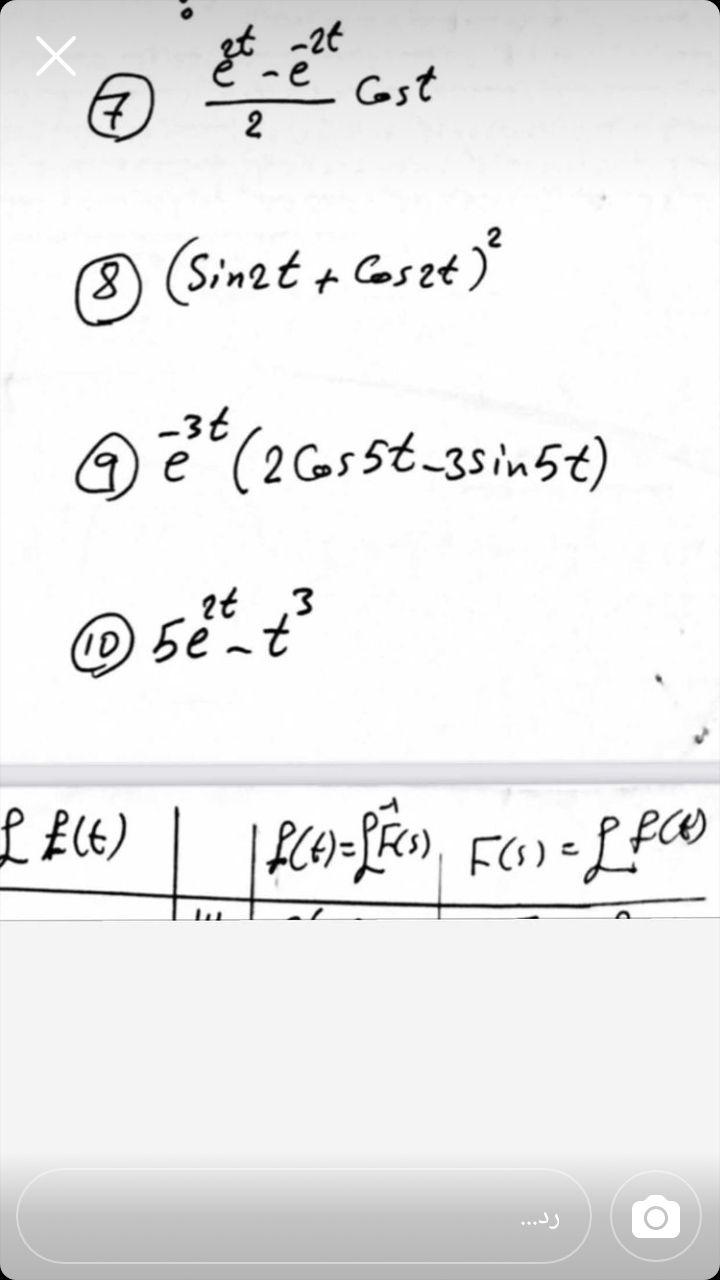 ⑦ (e^2t - e^-2t)/2 Cost
⑧ (Sin2t + Cos2t)^2
⑨ e^-3t (2Cos5t-3sin5t)
⑩ 5e^2t - t^3
£ f(t) | f(t)=£^-1 F(s) | F(s) = £ f(t)
رد...